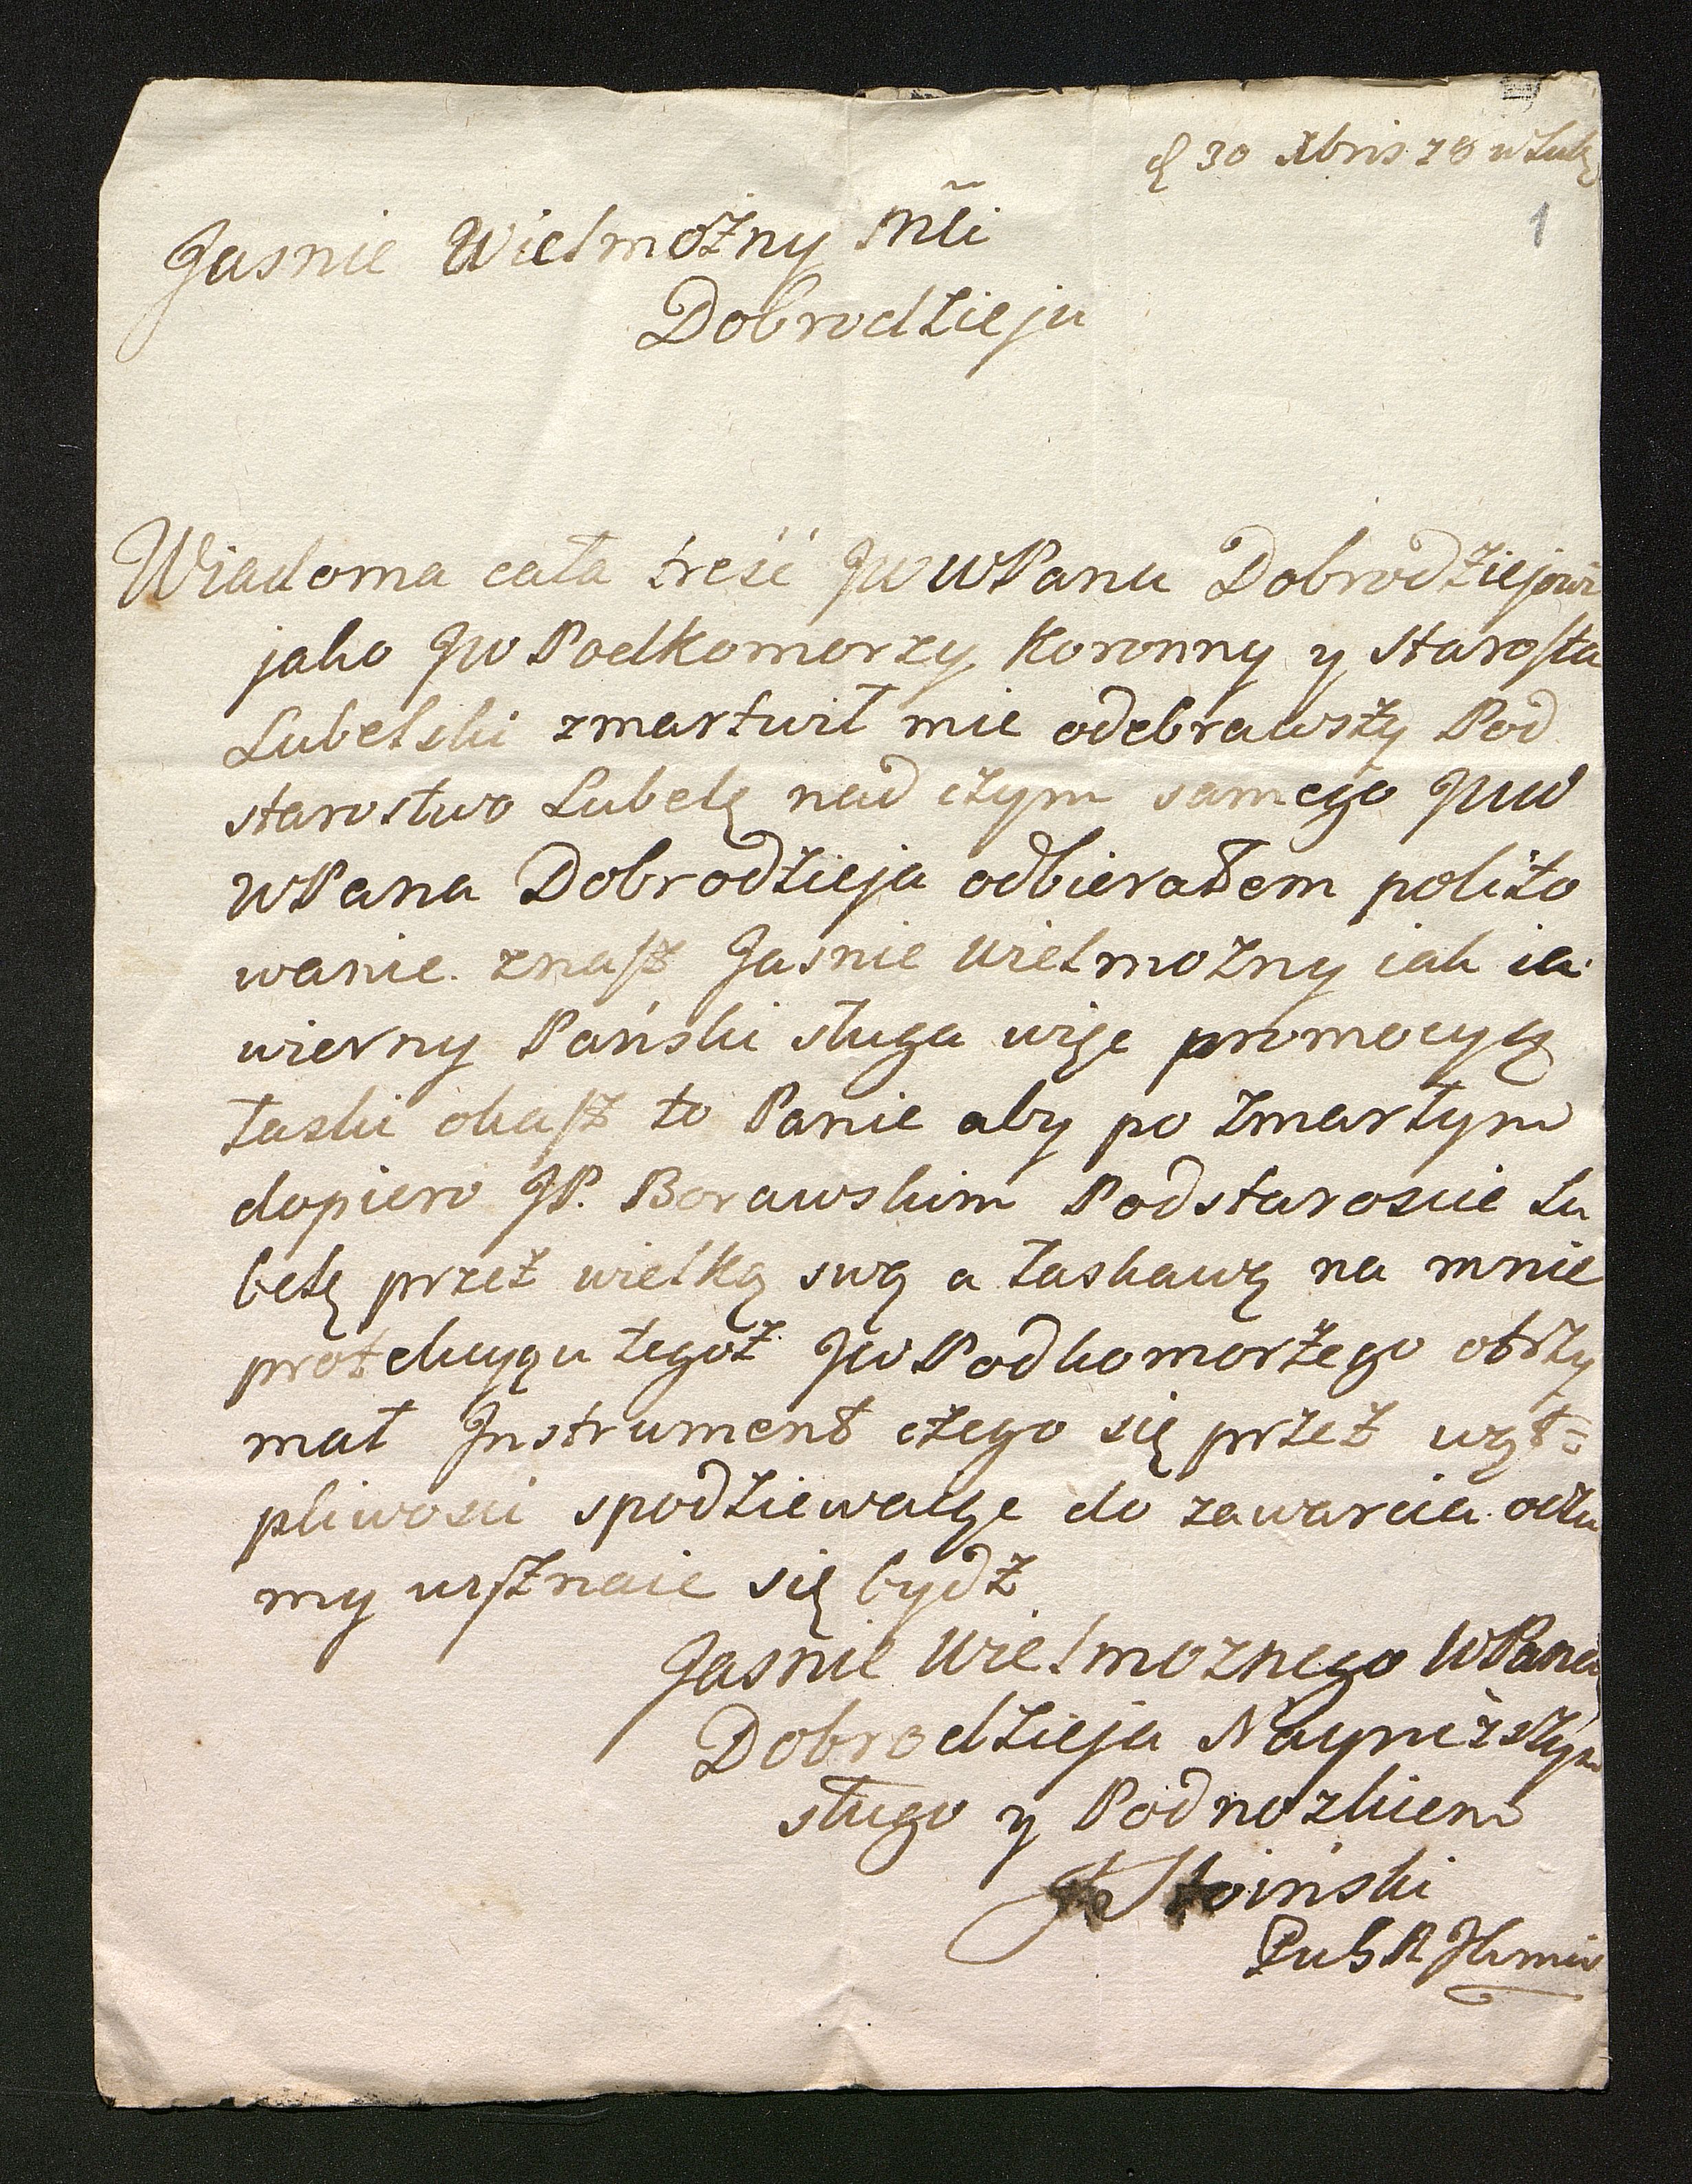 d 30 Xbris 78 w Lub
1
Jasnie Wielmożny Mći
Dobrodzieju
Wiadoma cała treść JWWPanu Dobrodziejowi
jako JW Podkomorzy Koronny y Starosta
Lubelski zmartwił mie odebrawszy Pod
starostwo Lubelę nad czym samego JWW
WPana Dobrodzieja odbierałem polito
wanie. znasz Jasnie Wielmożny iak ia
wierny Pański sługa więc promocyą
łaski okasz to Panie aby po zmarłym
dopiero JP. Borawskim Podstaroscie Lu
belę przez wielką swą a łaskawą na mnie
protekcyą u tegoż JW Podkomorzego obrzy
mał Instrument czego się przez wąt=
pliwosci spodziewaiąc do zawarcia oczu
my wysznaie się bydz
Jasnie Wielmoznego WPana
Dobrodzieja Nayniższym
sługo y Podnożkiem
Stoiński